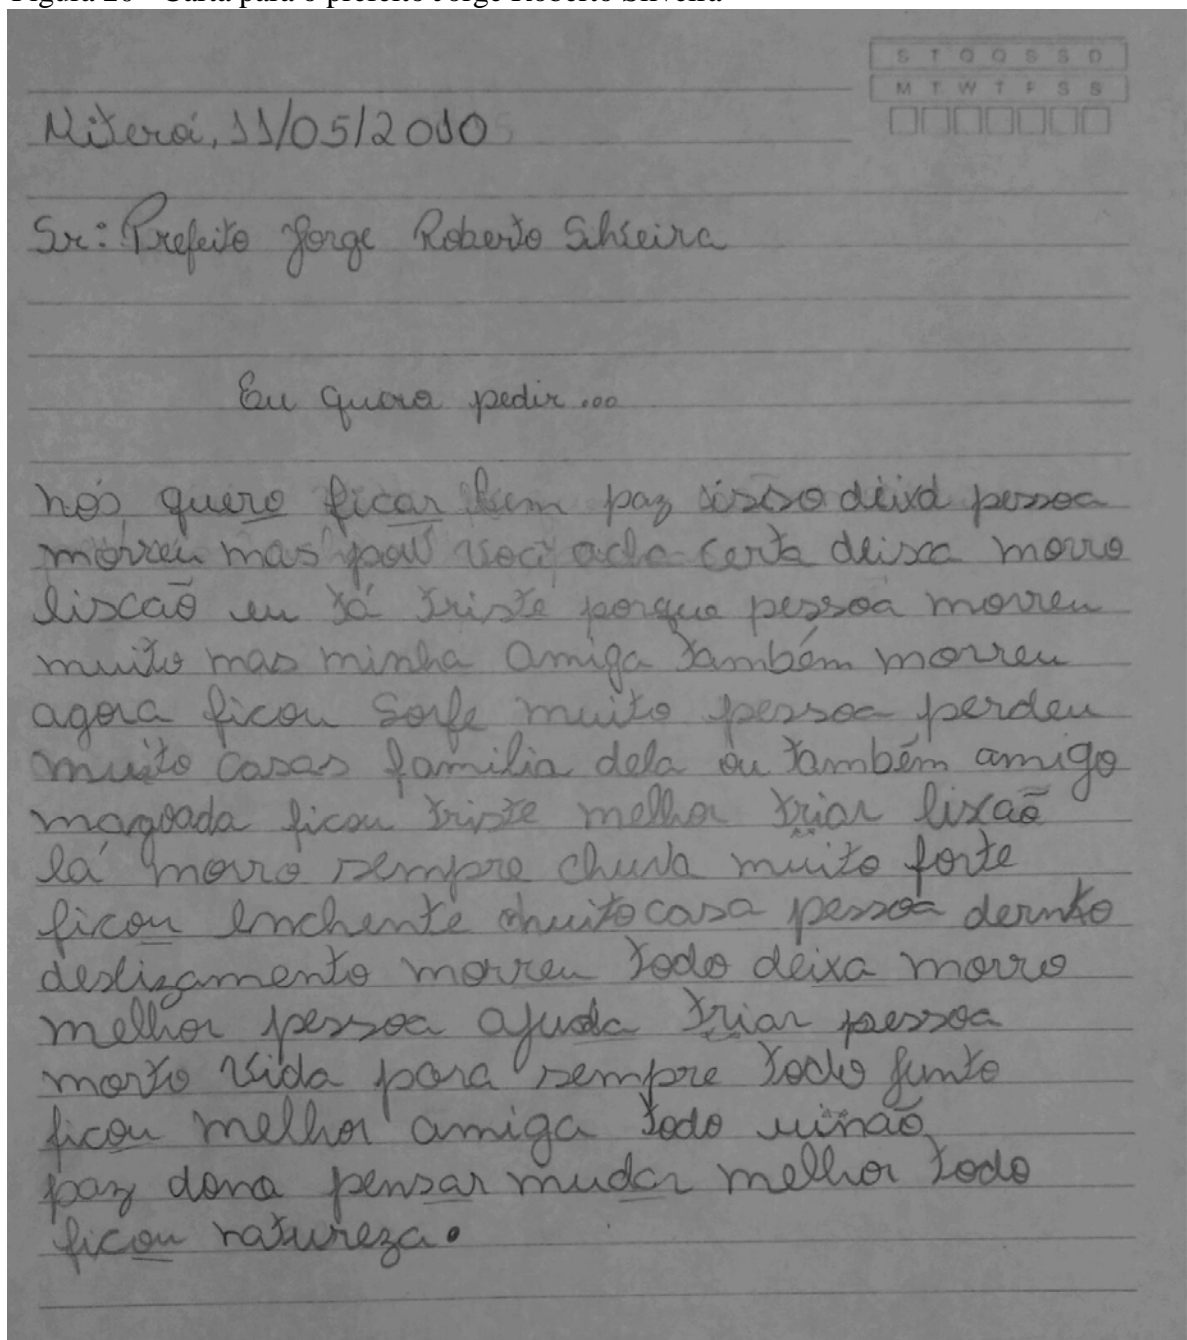 Figura 20 - Carta para o prefeito Jorge Roberto Silveira
S T Q Q S S D
M T W T F S S
Niteroí, 11/05/2010
Sr: Prefeito Jorge Roberto Silveira
Eu quero pedir...
nós quero ficar bem paz isso deixa pessoa
morreu mas você acha certa deixa morro
liscaõ eu tá triste porque pessoa morreu
muito mas minha amiga também morreu
agora ficou sofe muito pessoa perdeu
muito casas familia dela ou também amigo
magoada ficou triste melhor triar lixaõ
lá morro sempre chuva muito forte
ficou enchente muito casa pessoa dernto
deslizamento morreu todo deixa morro
melhor pessoa ajuda triar pessoa
morto vida para sempre todo junto
ficou melhor amiga todo uinaõ
paz dona pensar mudar melhor todo
ficou natureza.